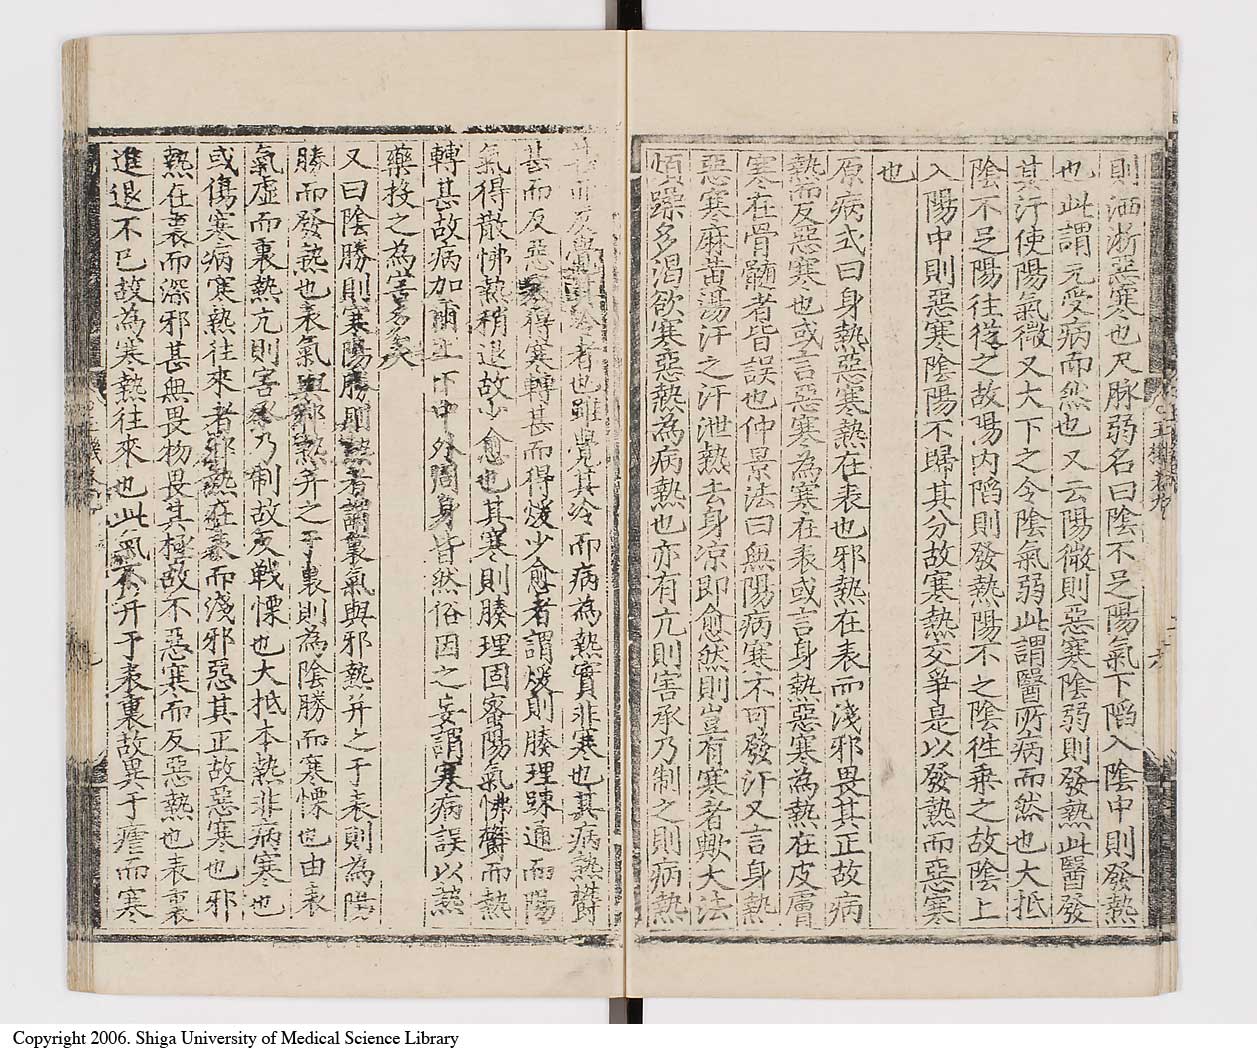 則洒淅惡寒也尺脉弱名曰陰不足陽氣下陷入陰中則發熱
也此謂元受病而然也又云陽微則惡寒陰弱則發熱此醫發
其汗使陽氣微又大下之令陰氣弱此謂醫所病而然也大抵
陰不足陽往從之故陽内陷則發熱陽不之陰徃乘之故陰上
入陽中則惡寒陰陽不歸其分故寒熱交爭是以發熱而惡寒
也
原病式曰身熱惡寒熱在表也邪熱在表而淺邪畏其正故病
熱而反惡寒也或言惡寒為寒在表或言身熱惡寒為熱在皮膚
寒在骨髓者皆誤也仲景法曰無陽病寒不可發汗又言身熱
惡寒麻黃湯汗之汗泄熱去身凉即愈然則豈有寒者歟大法
煩躁多渴欲寒惡熱為病熱也亦有亢則害承乃制之則病熱
甚而反覺其冷者也雖覺其冷而病為熱實非寒也其病熱欝
甚而反惡寒得寒轉甚而得煖少愈者謂煖則腠理踈通而陽
氣得散怫熱稍退故少愈也其寒則腠理固密陽氣怫欝而熱
轉甚故病加爾上下中外周身皆然俗因之妄謂寒病誤以熱
藥投之為害多矣
又曰陰勝則寒陽勝則熱者謂裏氣與邪熱并之于表則為陽
勝而發熱也表氣與邪熱并之于裏則為陰勝而寒慄也由表
氣虛而裏熱亢則害承乃制故反戰慄也大抵本熱非病寒也
或傷寒病寒熱往來者邪熱在表而淺邪惡其正故惡寒也邪
熱在裏而深邪甚無畏物畏其極故不惡寒而反惡熱也表裏
進退不已故為寒熱往來也此氣不并于表裏故異于瘧而寒
Copyright 2006. Shiga University of Medical Science Library